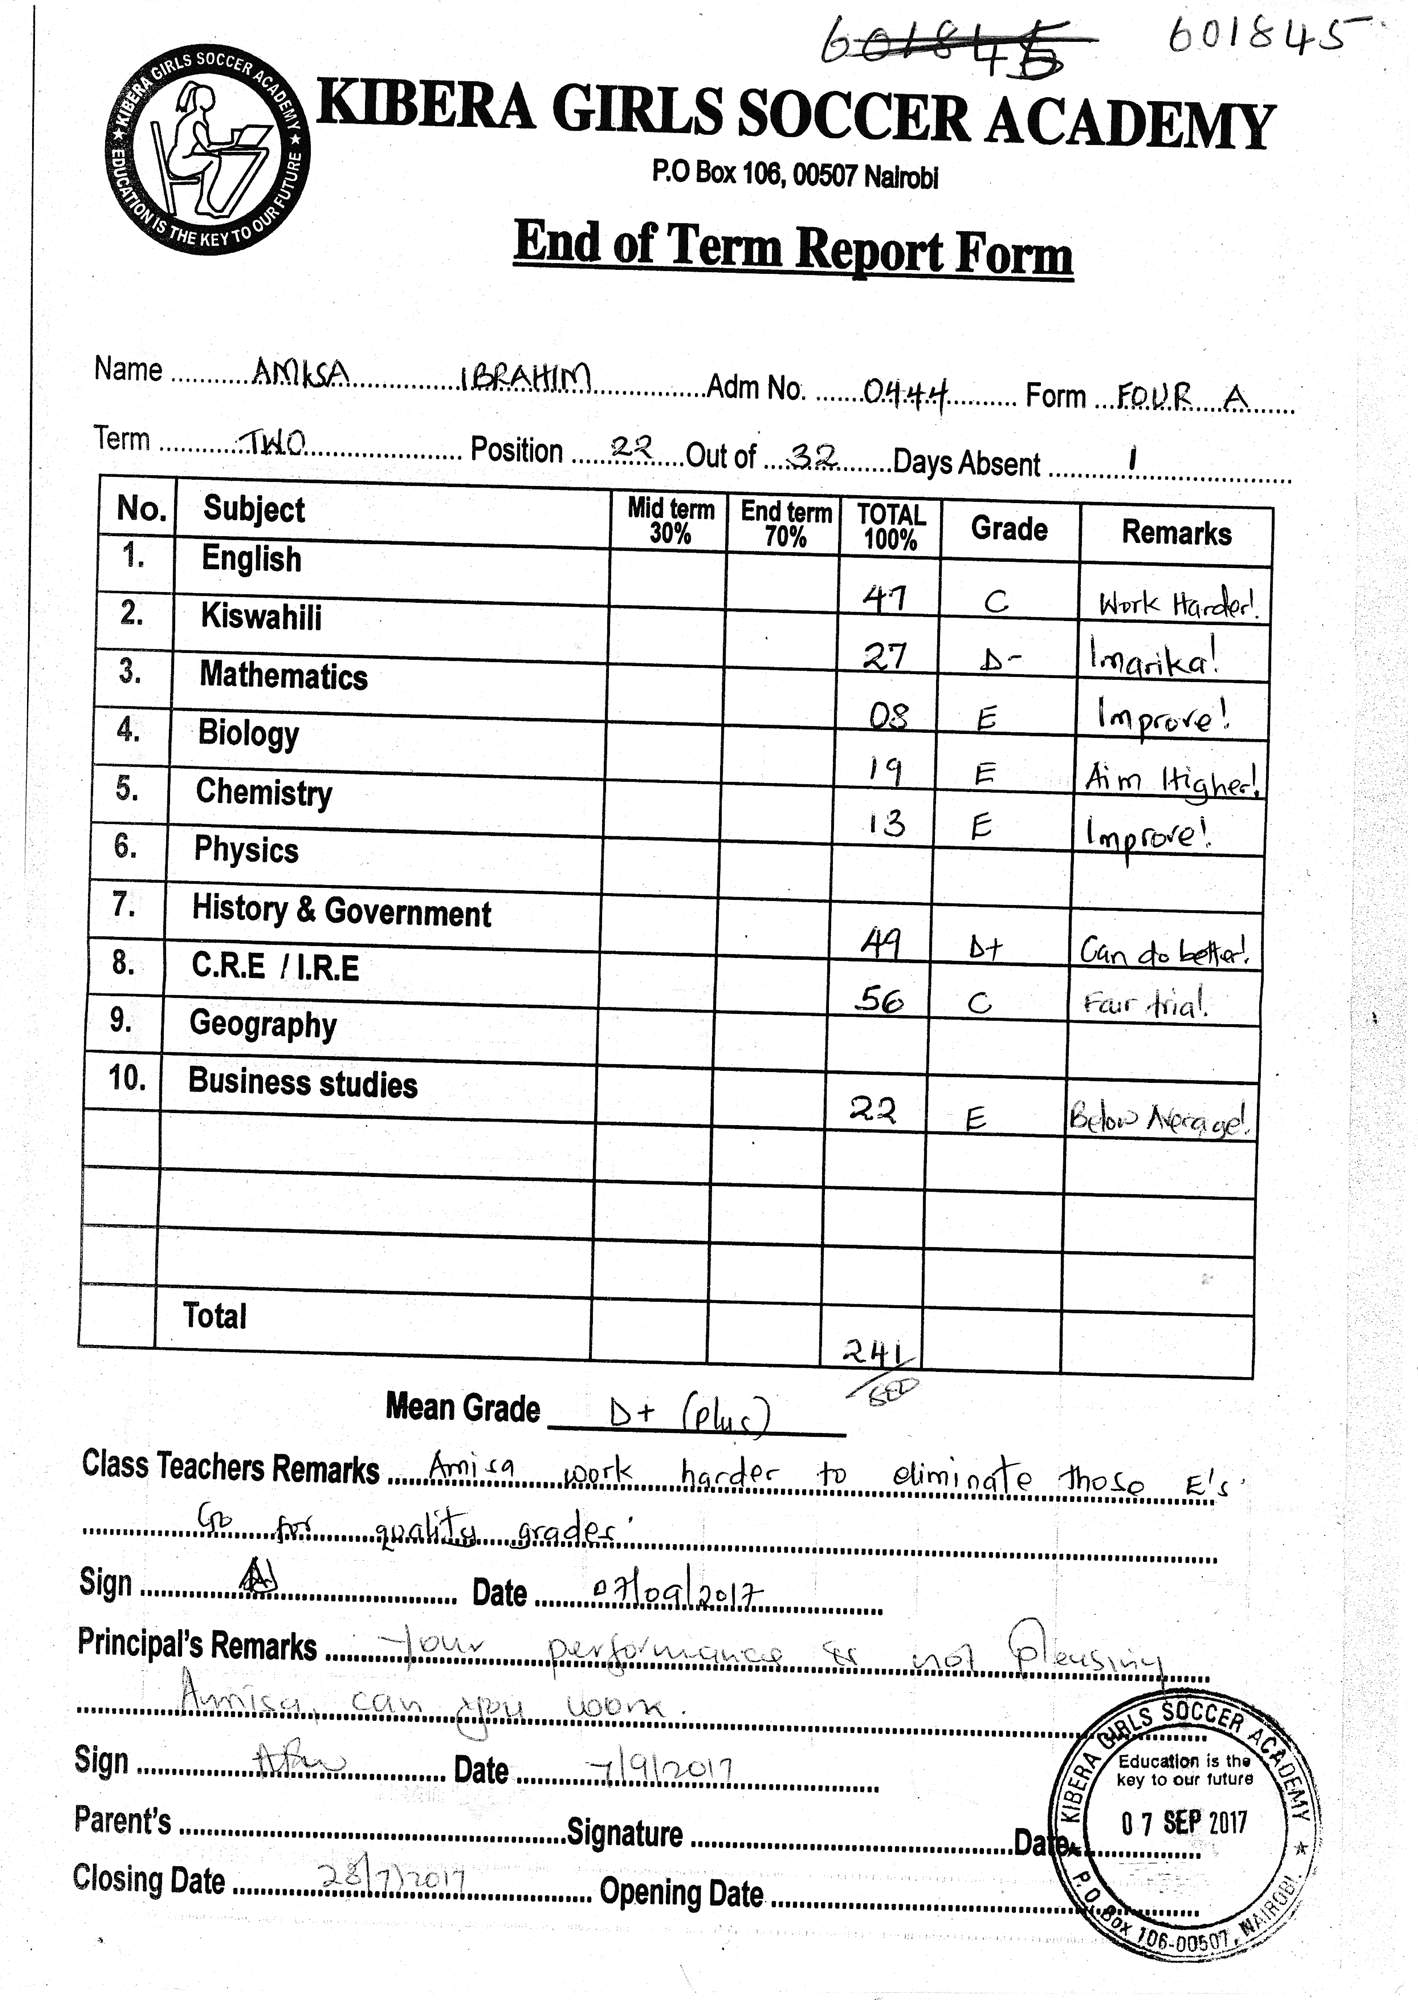 601845 601845
KIBERA GIRLS SOCCER ACADEMY
EDUCATION IS THE KEY TO OUR FUTURE
KIBERA GIRLS SOCCER ACADEMY
P.O Box 106, 00507 Nairobi
End of Term Report Form
Name AMISA IBRAHIM Adm No. 0444 Form FOUR A
Term TWO Position 22 Out of 32 Days Absent 1
No. Subject Mid term 30% End term 70% TOTAL 100% Grade Remarks
1. English 47 C Work Harder!
2. Kiswahili 27 D- Imarika!
3. Mathematics 08 E Improve!
4. Biology 19 E Aim Higher!
5. Chemistry 13 E Improve!
6. Physics
7. History & Government 49 D+ Can do better!
8. C.R.E / I.R.E 56 C Fair trial!
9. Geography
10. Business studies 22 E Below Average!
Total 241
Mean Grade D+ (plus)
Class Teachers Remarks Amisa work harder to eliminate those E's
Go for quality grades
Sign Date 07/09/2017
Principal's Remarks Your performance is not pleasing
Amisa, can you work.
Sign Date 7/9/2017
Parent's Signature Date
Closing Date 28/7/2017 Opening Date
KIBERA GIRLS SOCCER ACADEMY
Education is the
key to our future
07 SEP 2017
P.O. Box 106-00507, NAIROBI.